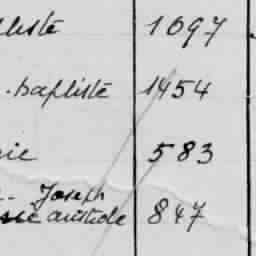 liste 1097
. baptiste 1454
ie 583
.. Joseph
aristide 847